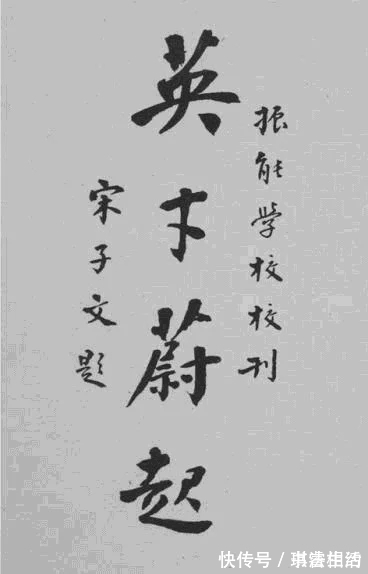 振能学校校刊
英才蔚起
宋子文题
快传号／琪露相酒